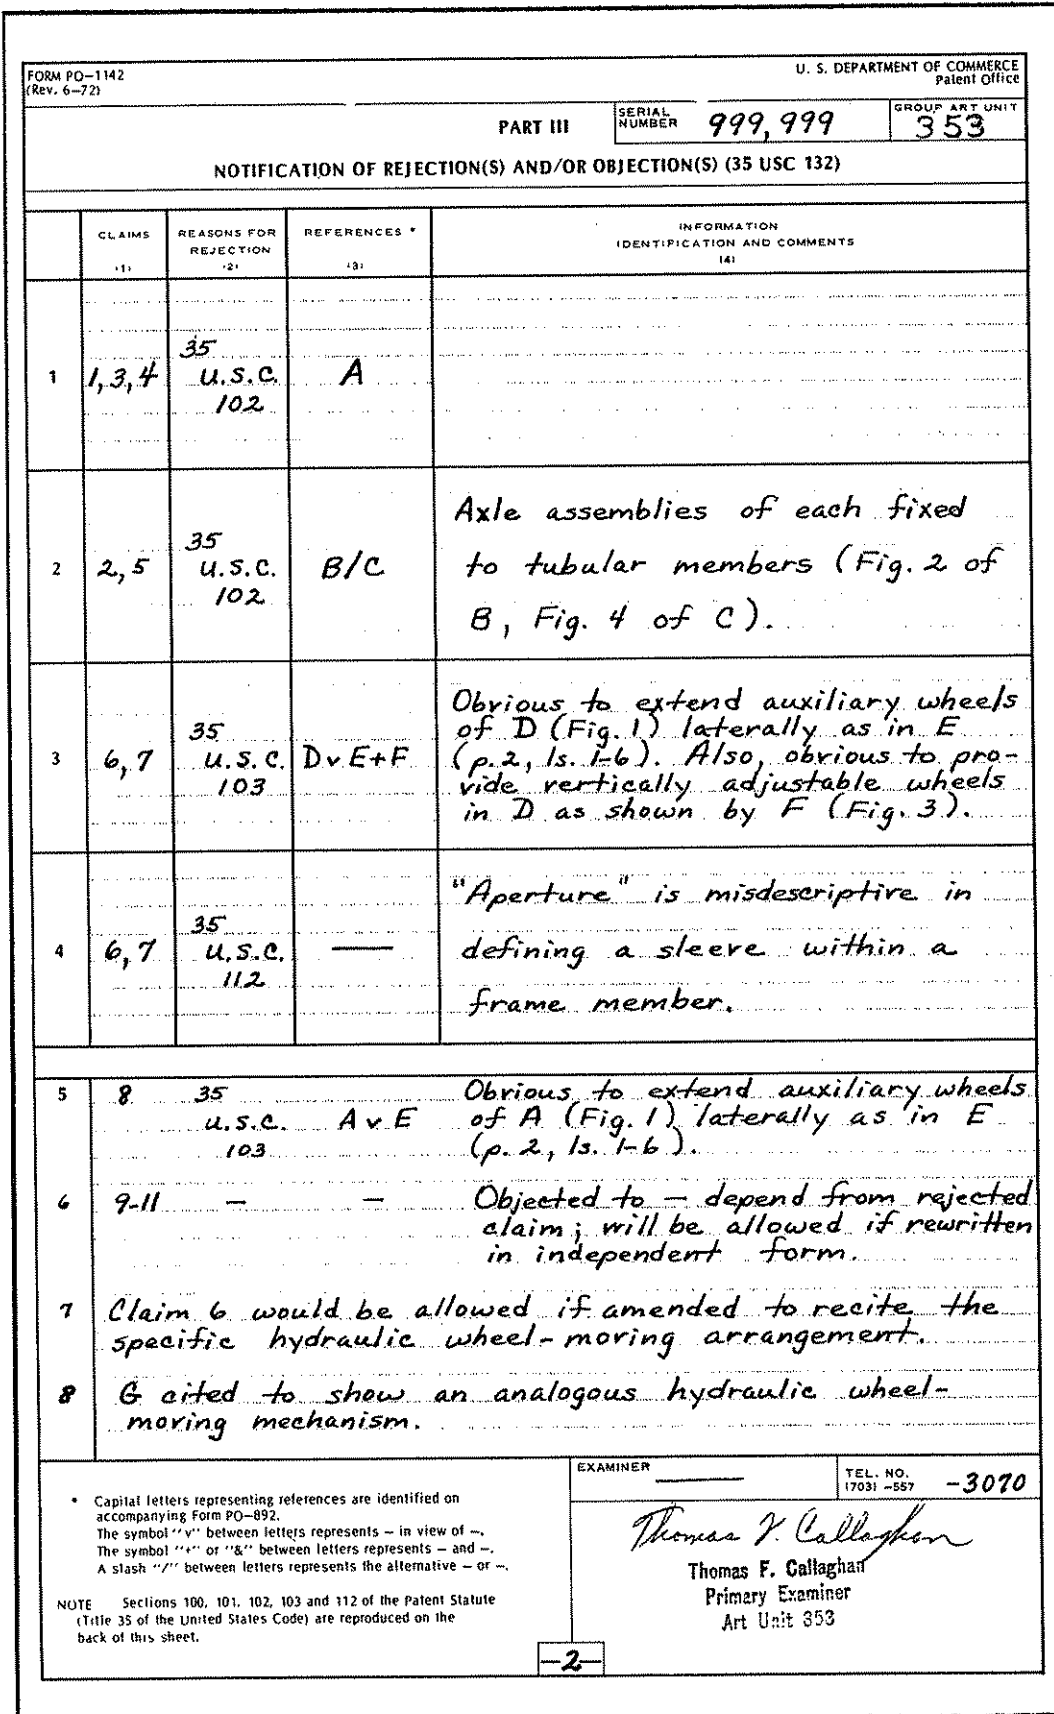 FORM PO-1142
(Rev. 6-72)
U. S. DEPARTMENT OF COMMERCE
Patent Office
PART III
SERIAL
NUMBER 999,999
GROUP ART UNIT
353
NOTIFICATION OF REJECTION(S) AND/OR OBJECTION(S) (35 USC 132)
CLAIMS
(1)
REASONS FOR
REJECTION
(2)
REFERENCES *
(3)
INFORMATION
IDENTIFICATION AND COMMENTS
(4)
1
1,3,4
35
U.S.C.
102
A
2
2,5
35
U.S.C.
102
B/C
Axle assemblies of each fixed
to tubular members (Fig. 2 of
B, Fig. 4 of C).
3
6,7
35
U.S.C.
103
D v E+F
Obvious to extend auxiliary wheels
of D (Fig. 1) laterally as in E
(p. 2, ls. 1-6). Also, obvious to pro-
vide vertically adjustable wheels
in D as shown by F (Fig. 3).
4
6,7
35
U.S.C.
112
—
"Aperture" is misdescriptive in
defining a sleeve within a
frame member.
5
8
35
U.S.C.
103
A v E
Obvious to extend auxiliary wheels
of A (Fig. 1) laterally as in E
(p. 2, ls. 1-6).
6
9-11
—
—
Objected to — depend from rejected
claim; will be allowed if rewritten
in independent form.
7
Claim 6 would be allowed if amended to recite the
specific hydraulic wheel-moving arrangement.
8
G cited to show an analogous hydraulic wheel-
moving mechanism.
* Capital letters representing references are identified on
accompanying Form PO-892.
The symbol "v" between letters represents – in view of –.
The symbol "+" or "&" between letters represents – and –.
A slash "/" between letters represents the alternative – or –.
NOTE Sections 100, 101, 102, 103 and 112 of the Patent Statute
(Title 35 of the United States Code) are reproduced on the
back of this sheet.
EXAMINER —
TEL. NO.
(703) -557 -3070
Thomas F. Callaghan
Thomas F. Callaghan
Primary Examiner
Art Unit 353
-2-